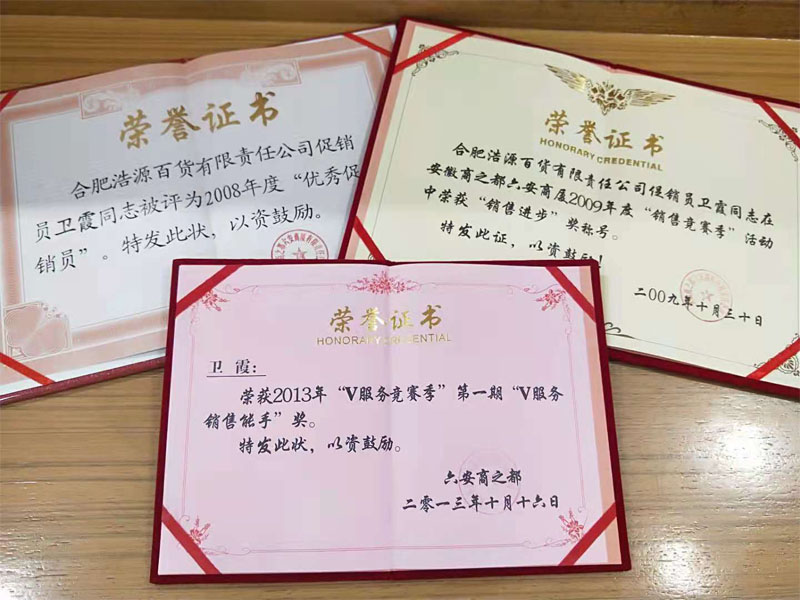 荣誉证书
合肥浩源百货有限责任公司促销
员卫霞同志被评为2008年度“优秀促
销员”。特发此状,以资鼓励。
荣誉证书
HONORARY CREDENTIAL
合肥浩源百货有限责任公司促销员卫霞同志在
安徽商之都六安商厦2009年度“销售竞赛季”活动
中荣获“销售进步”奖称号。
特发此证,以资鼓励!
二00九年十月三十日
荣誉证书
HONORARY CREDENTIAL
卫霞:
荣获2013年“V服务竞赛季”第一期“V服务
销售能手”奖。
特发此状,以资鼓励。
六安商之都
二零一三年十月十六日